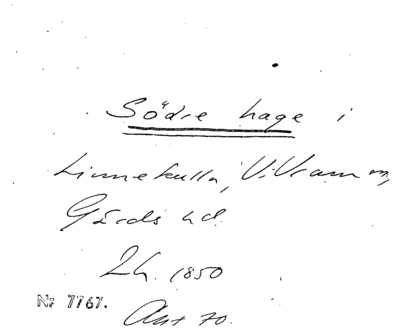 Södre hage i
Linnekulla, V. Vram m,
Gärds hd.
2h. 1850
Nr 7767.
Akt 70.